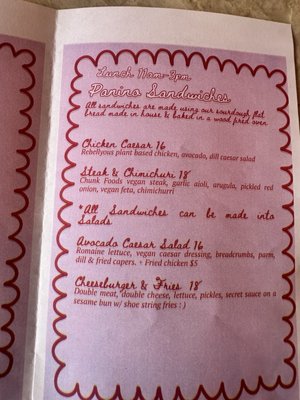 Lunch 11am-3pm
Panino Sandwiches
All sandwiches are made using our sourdough flat
bread made in house & baked in a wood fired oven
Chicken Caesar 16
Rebellyous plant based chicken, avocado, dill caesar salad
Steak & Chimichuri 18
Chunk Foods vegan steak, garlic aioli, arugula, pickled red
onion, vegan feta, chimichurri
*All Sandwiches can be made into
Salads
Avocado Caesar Salad 16
Romaine lettuce, vegan caesar dressing, breadcrumbs, parm,
dill & fried capers. + Fried chicken $5
Cheeseburger & Fries 18
Double meat, double cheese, lettuce, pickles, secret sauce on a
sesame bun w/ shoe string fries : )